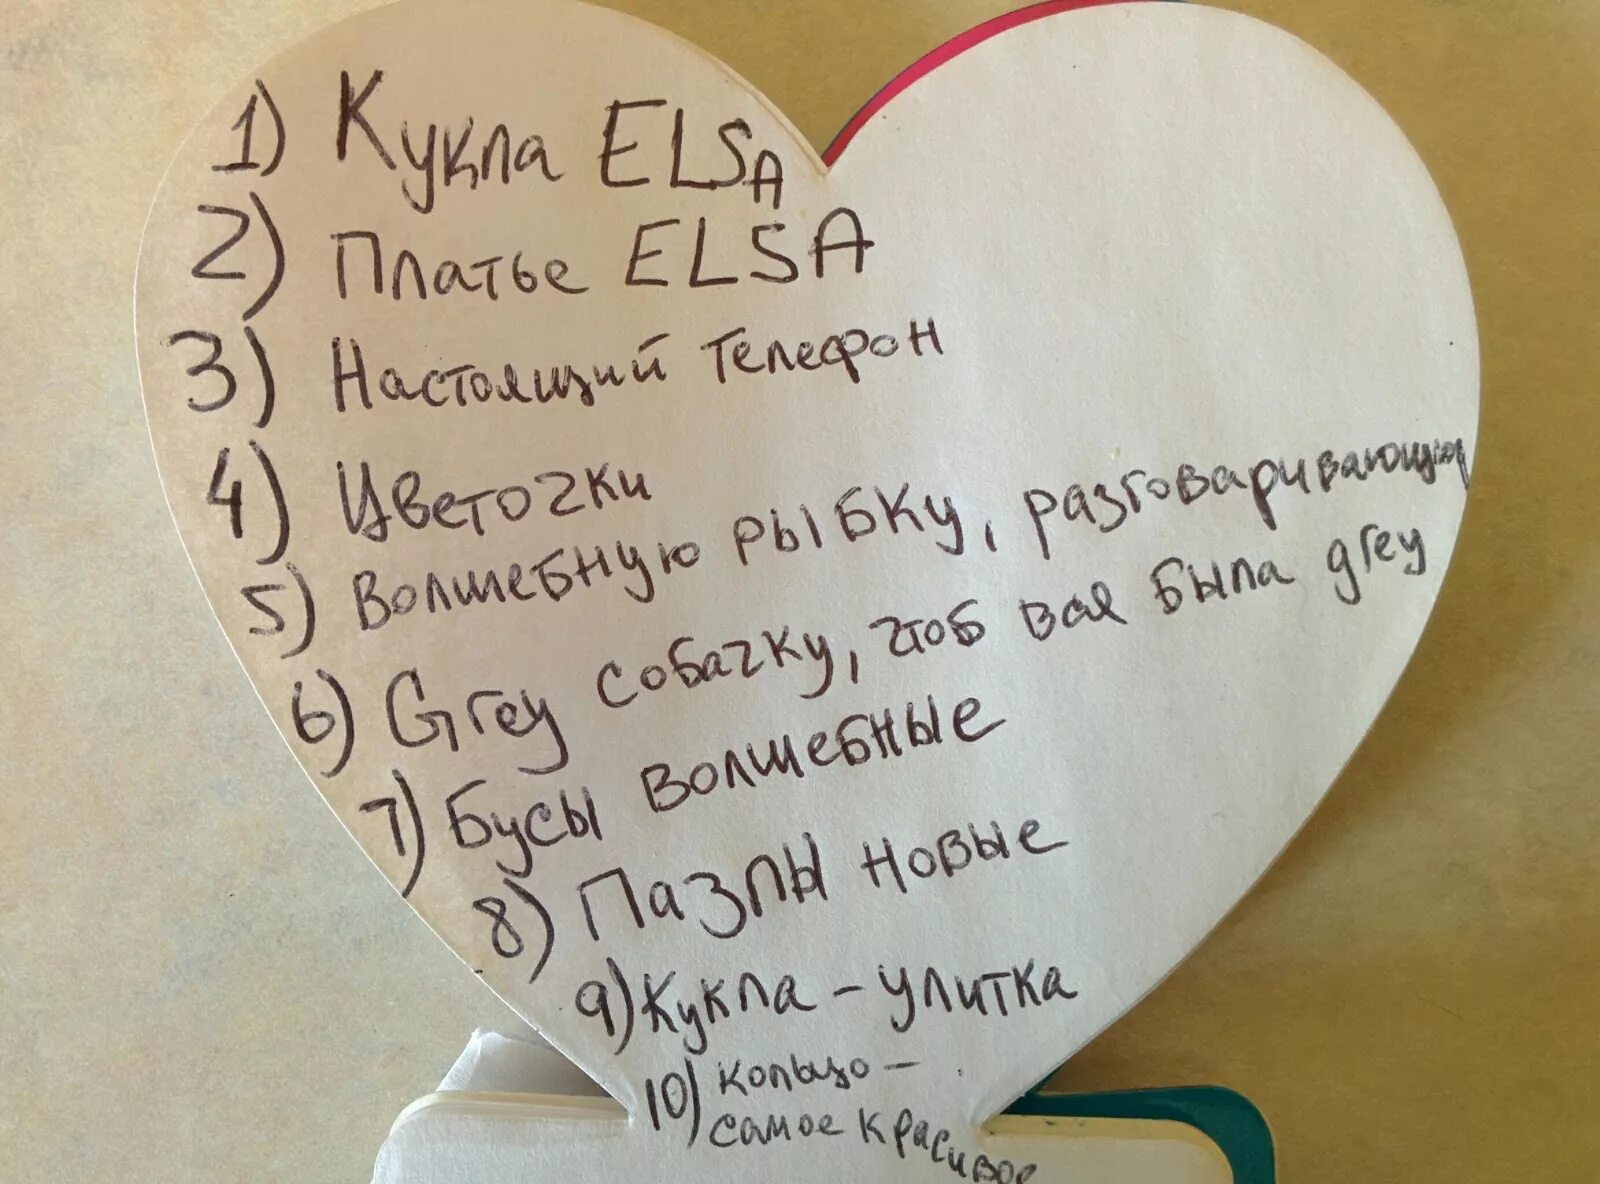 1) Кукла ELSA
2) Платье ELSA
3) Настоящий телефон
4) Цветочки
5) Волшебную рыбку, разговаривающую
6) Grey собачку, чтоб вся была grey
7) Бусы волшебные
8) Пазлы новые
9) Кукла - улитка
10) Кольцо -
самое красивое